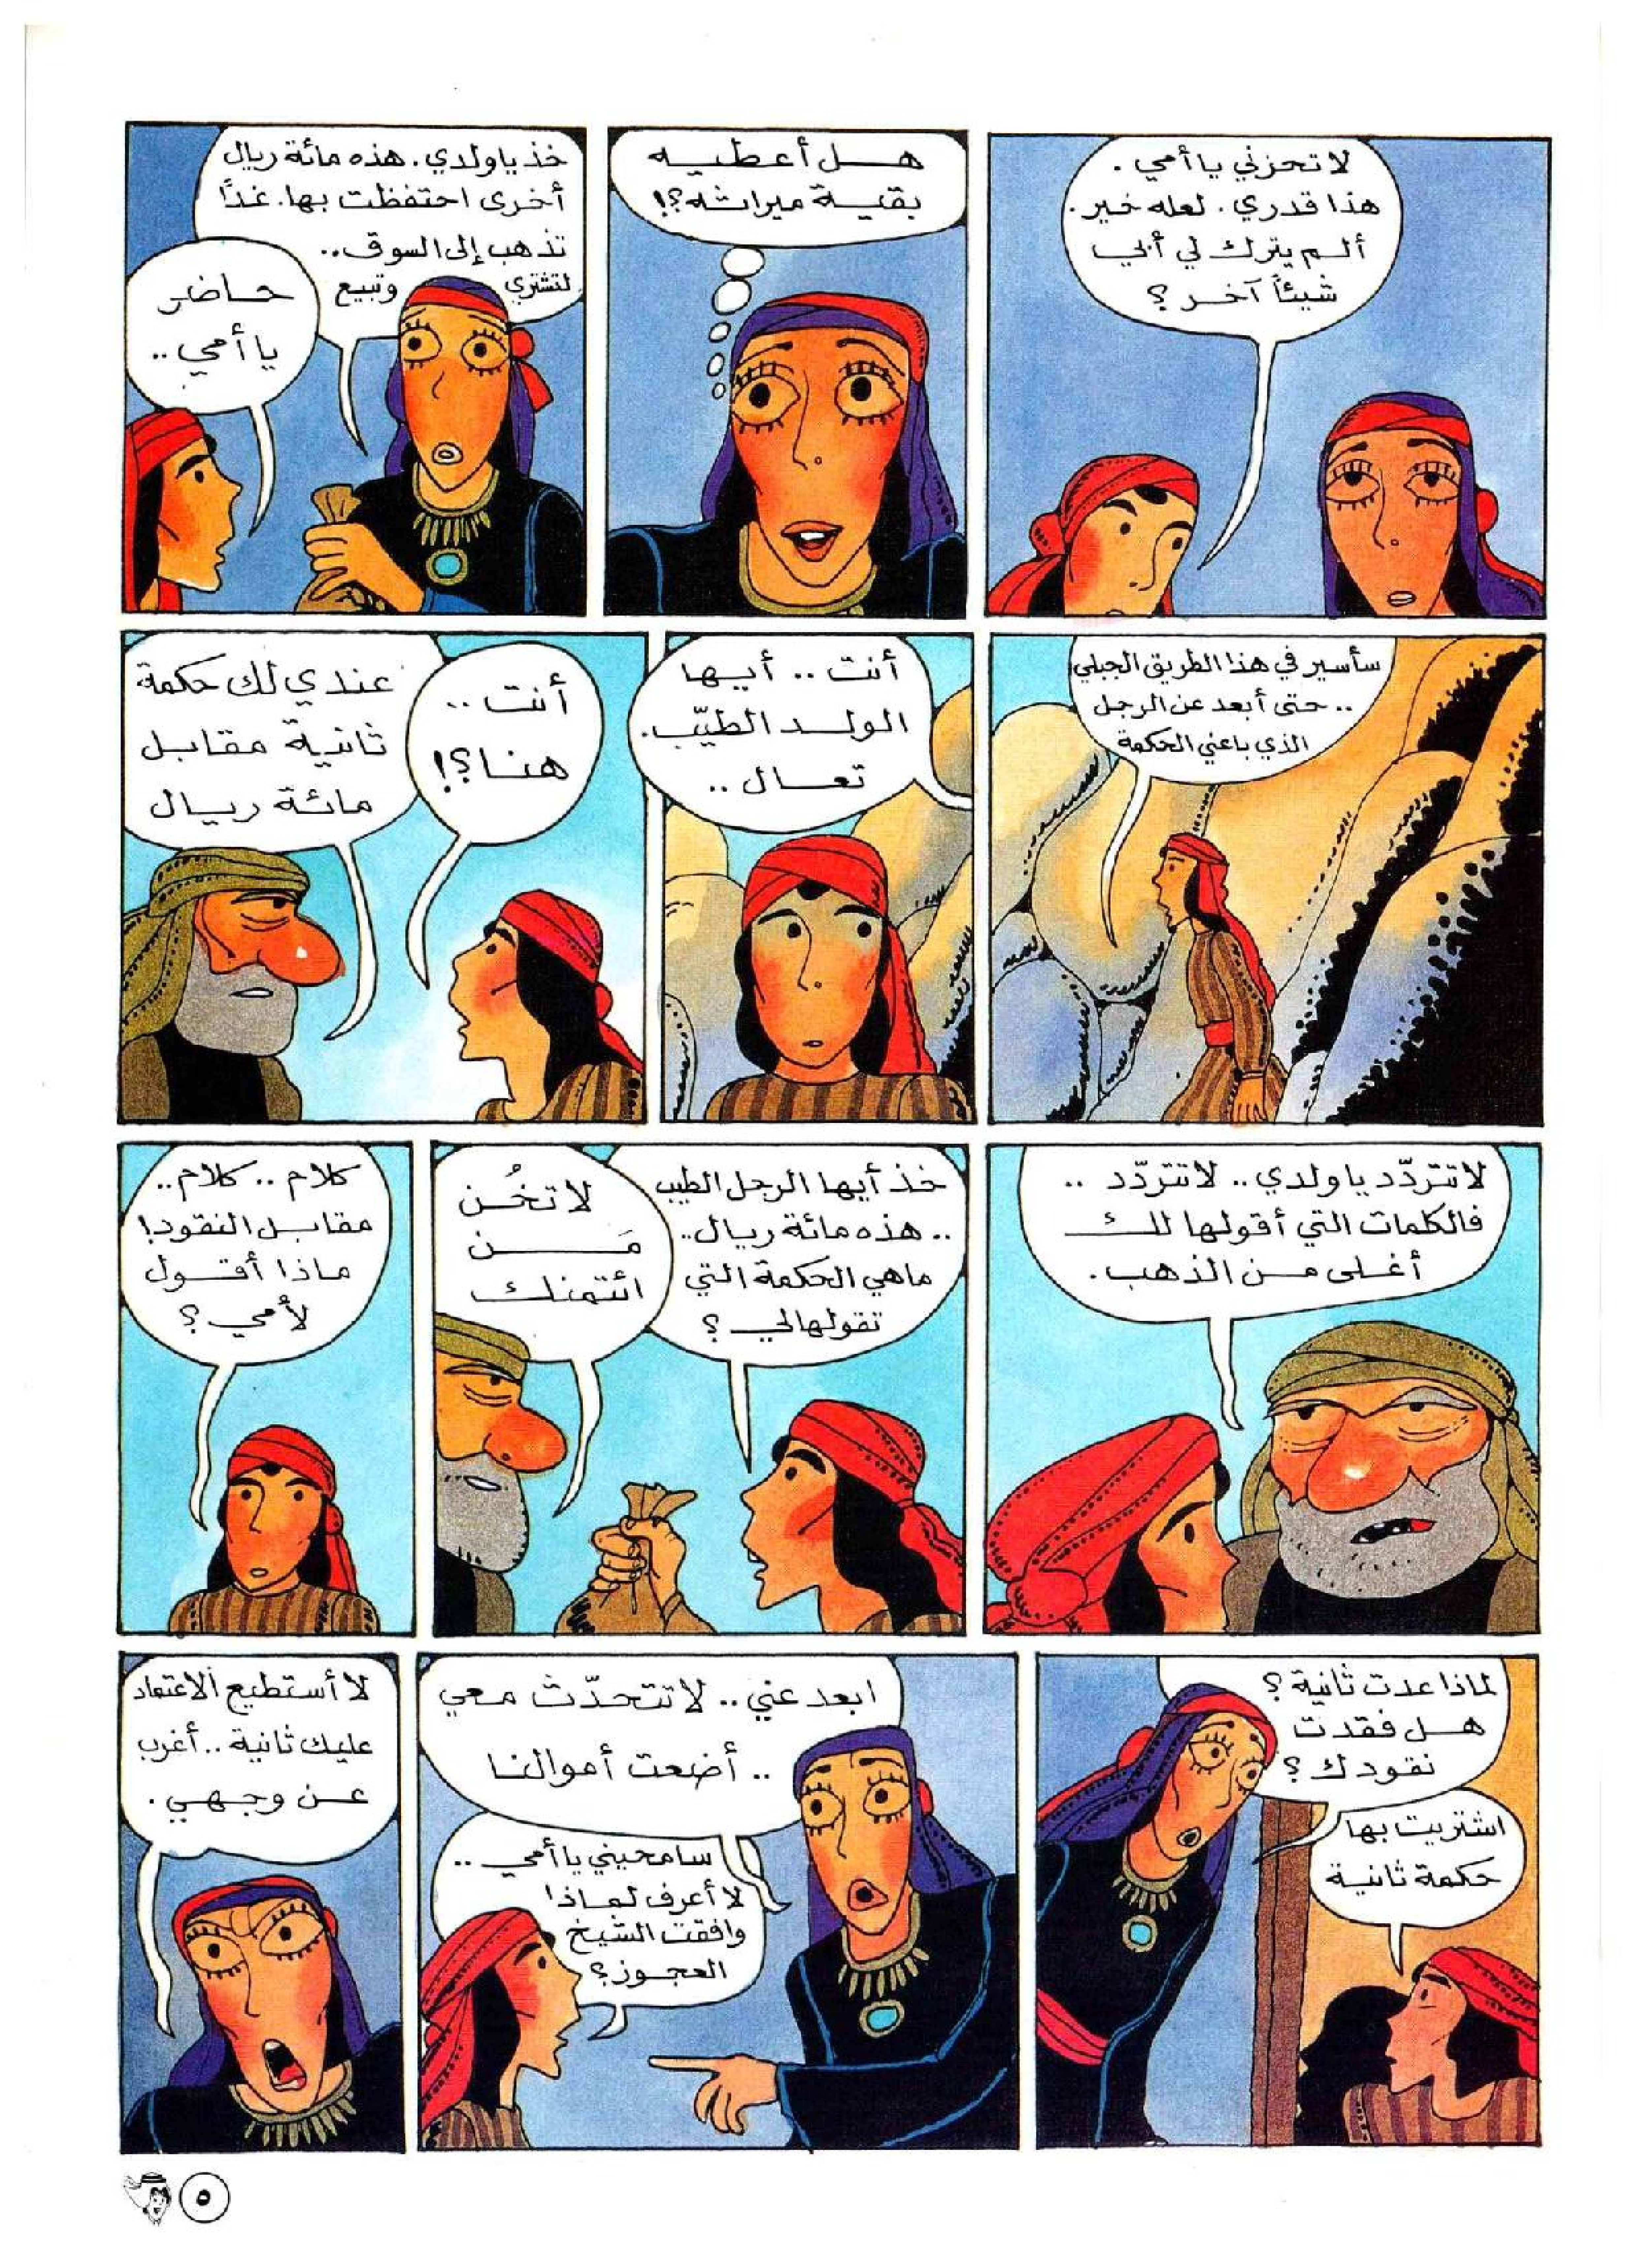 لا تحزني يا أمي .
هذا قدري . لعله خير .
ألم يترك لي أبي
شيئاً آخر ؟
هل أعطيه
بقية ميراثه ؟!
خذ يا ولدي . هذه مائة ريال
أخرى احتفظت بها . غداً
تذهب إلى السوق ..
لتشتري وتبيع
حاضر
يا أمي ..
سأسير في هذا الطريق الجبلي
.. حتى أبعد عن الرجل
الذي باعني الحكمة
أنت .. أيها
الولد الطيّب .
تعال ..
أنت ..
هنا ؟!
عندي لك حكمة
ثانية مقابل
مائة ريال
لا تتردّد يا ولدي .. لا تتردّد ..
فالكلمات التي أقولها لك
أغلى من الذهب .
خذ أيها الرجل الطيب
.. هذه مائة ريال ..
ما هي الحكمة التي
تقولها لي ؟
لا تخُن
مَن
ائتمنك
كلام .. كلام ..
مقابل النقود !
ماذا أقول
لأمي ؟
لماذا عدت ثانية ؟
هل فقدت
نقودك ؟
اشتريت بها
حكمة ثانية
ابعد عني .. لا تتحدّث معي
.. أضعت أموالنا
سامحيني يا أمي ..
لا أعرف لماذا
وافقت الشيخ
العجوز ؟
لا أستطيع الاعتماد
عليك ثانية .. أغرب
عن وجهي .
٥